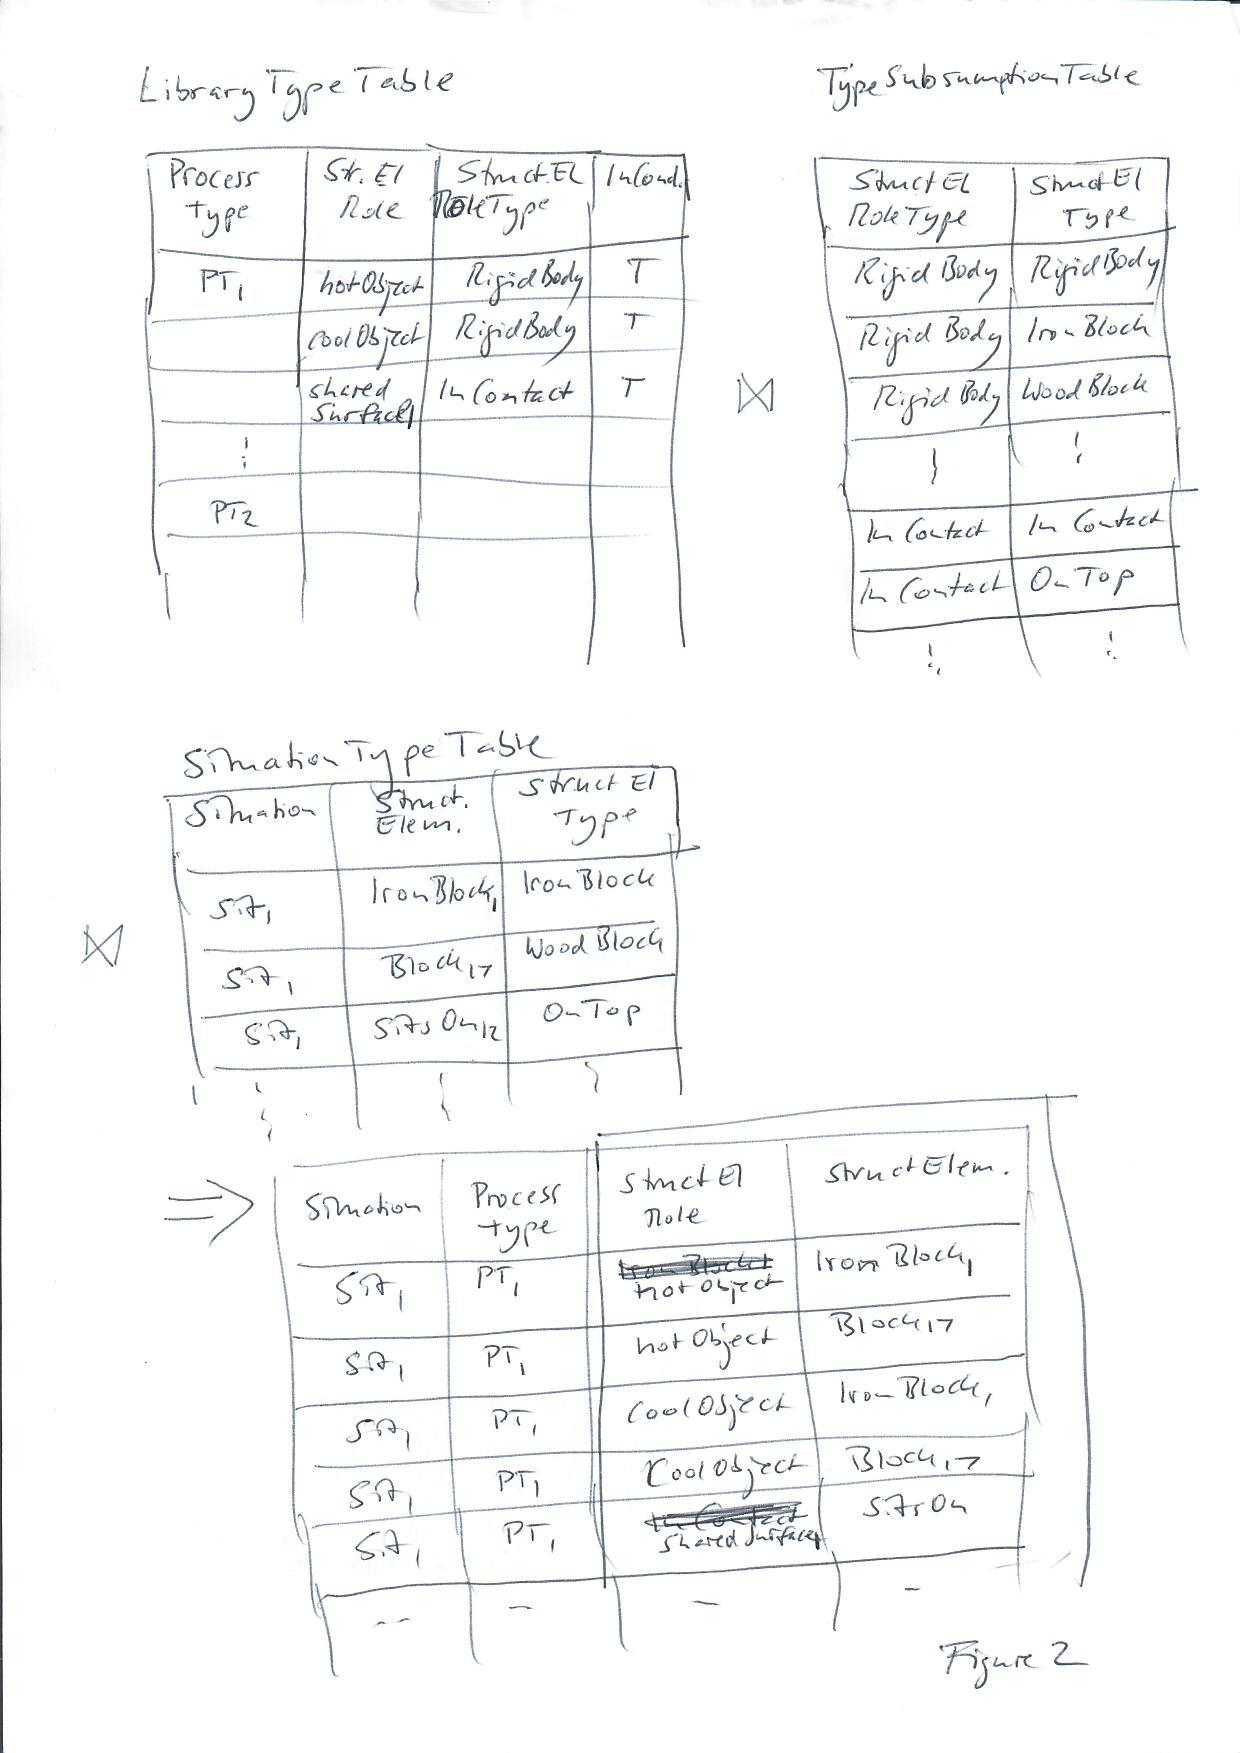 LibraryTypeTable
TypeSubsumptionTable
Process Type
Str. El Role
Struct. El RoleType
InCond.
PT1
hotObject
RigidBody
T
coolObject
RigidBody
T
shared Surface1
InContact
T
PT2
⋈
StructEl RoleType
StructEl Type
RigidBody
RigidBody
RigidBody
IronBlock
RigidBody
WoodBlock
InContact
InContact
InContact
OnTop
SituationTypeTable
⋈
Situation
Struct. Elem.
StructEl Type
Sit1
IronBlock1
IronBlock
Sit1
Block17
WoodBlock
Sit1
SitsOn12
OnTop
⇒
Situation
Process type
StructEl Role
StructElem.
Sit1
PT1
hotObject
IronBlock1
Sit1
PT1
hotObject
Block17
Sit1
PT1
CoolObject
IronBlock1
Sit1
PT1
CoolObject
Block17
Sit1
PT1
sharedSurface1
SitsOn
Figure 2